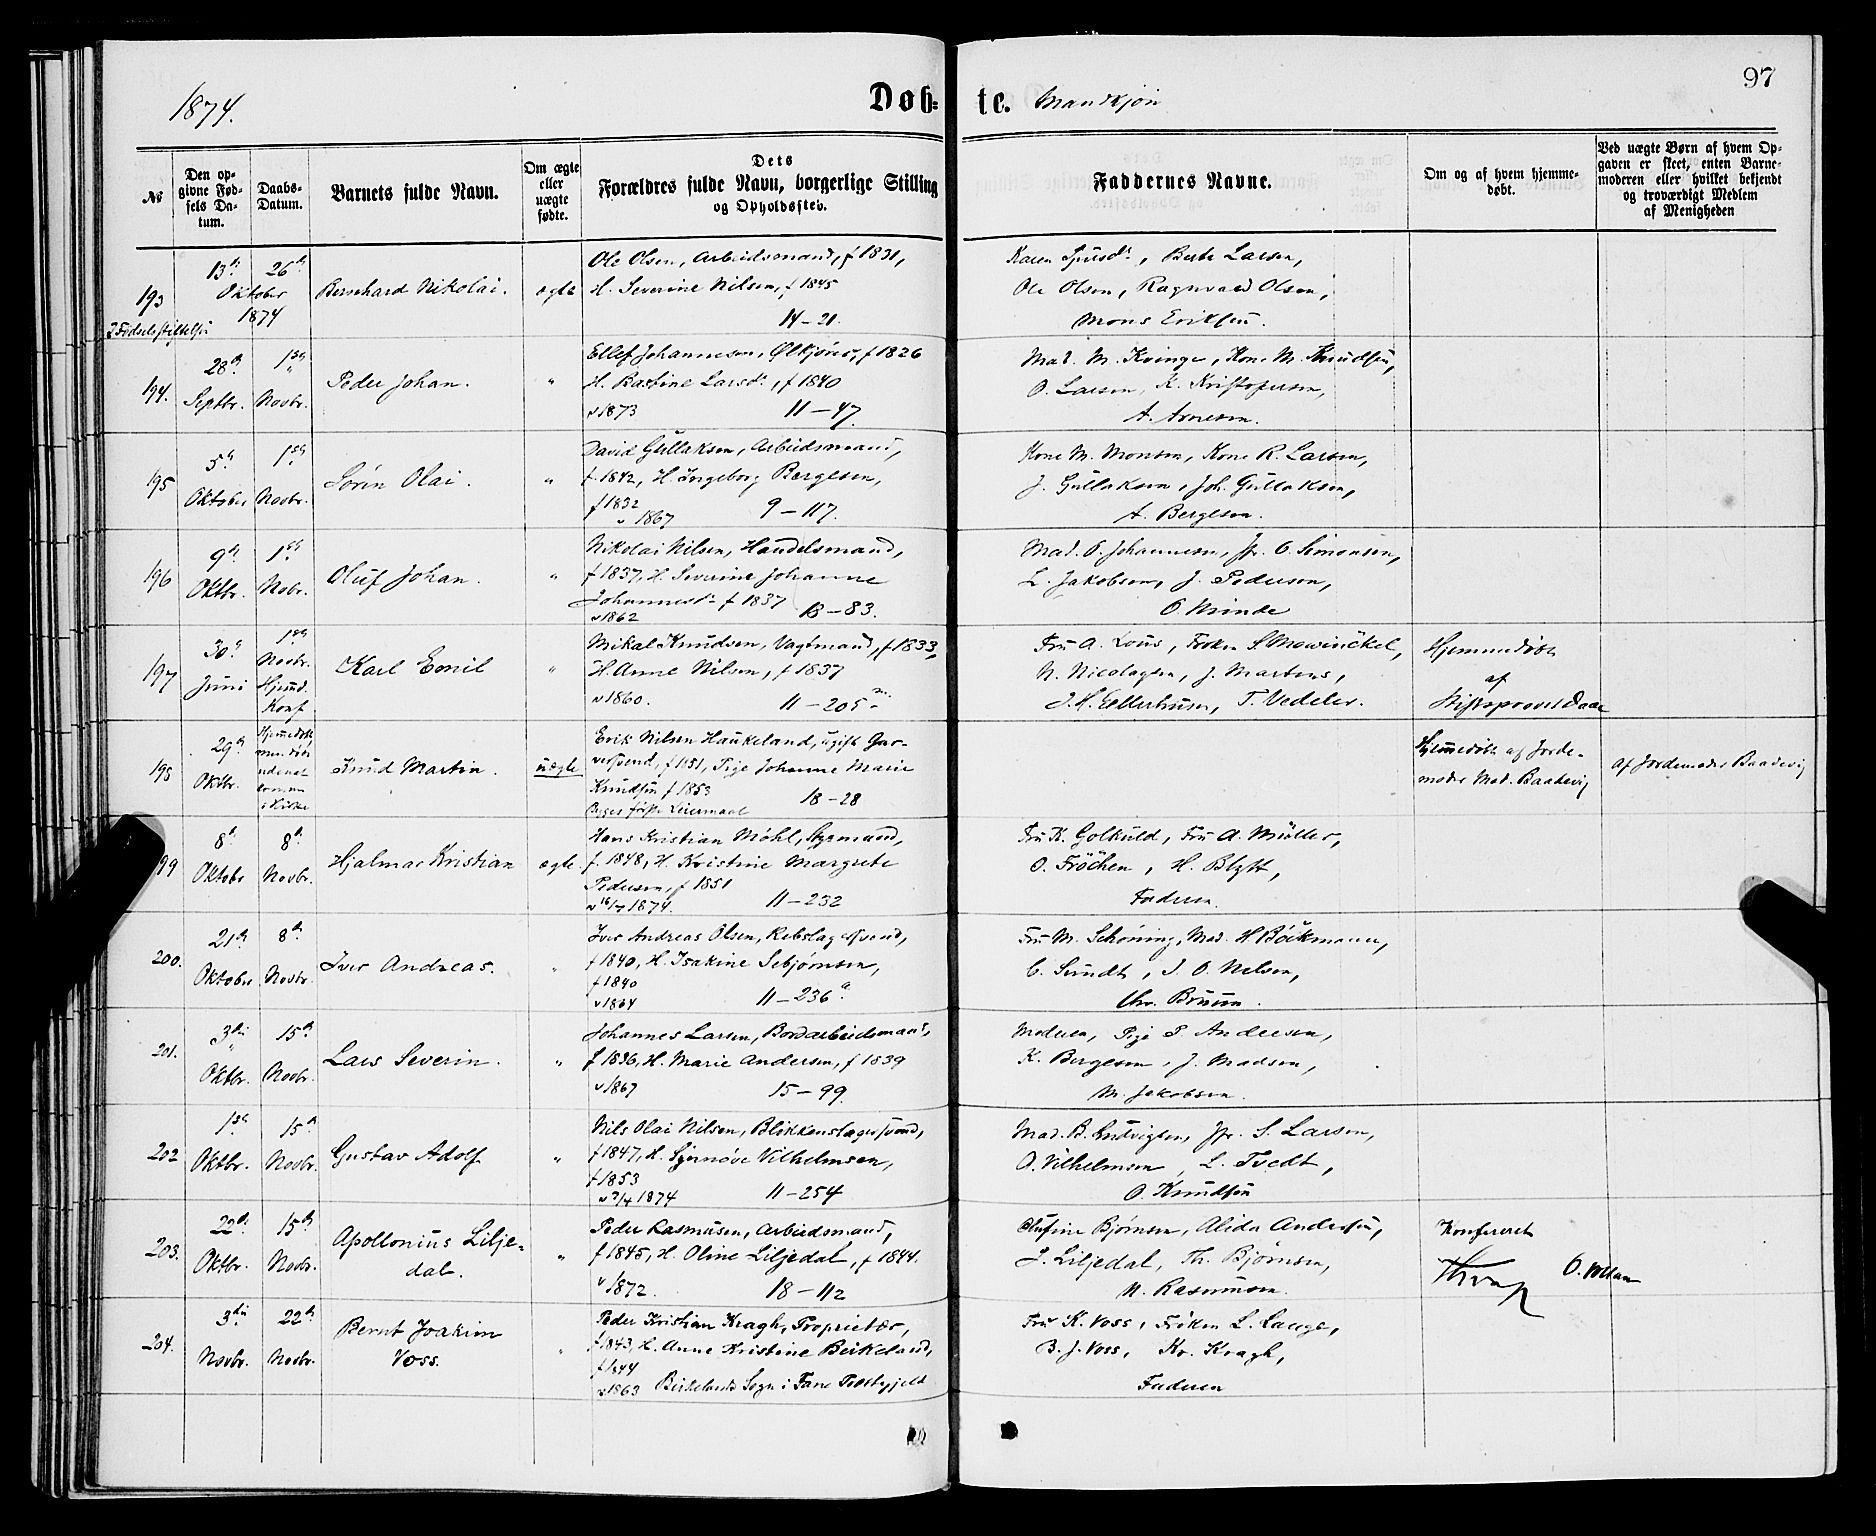 1874.
Døb=
te.
Mandkjøn
97
No
Den op-
givne Fød-
sels Da-
tum.
Daabs-
Datum.
Barnets fulde Navn.
Om ægte
eller
uægte
fødte.
Dets
Forældres fulde Navn, borgerlige Stilling
og Opholdssted.
Faddernes Navne.
Om og af hvem hjemme-
døbt.
Ved uægte Børn af hvem Op-
gaven er skeet, enten Barne-
moderen eller hvilket bekjendt
og troværdigt Medlem
af Menigheden
193
13de
26de
Oktober
1874
Bernhard Nikolai.
ægte
Ole Olsen, Arbeidsmand, f 1831,
H. Severine Nilsen, f 1845
14-21.
Berte Larsen,
Ole Olsen, Ragnvald Olsen,
Mons Eriksen.
194.
28de
1ste
Septbr.
Novbr.
Peder Johan.
"
Ellef Johannesen, f 1826
H. Bastine Larsdr, f 1840
v 1873
11-47.
Mad. M. Kvinge, Kone M. Knudsen,
O. Larsen, K. Kristofersen,
A. Arnesen.
195
5te
1ste
Oktober
Novbr.
Sørin Olai.
"
David Gullaksen, Arbeidsmand,
f 1842, H. Ingeborg Bergesen,
f 1832
v 1867
9-117.
Kone M. Monsen, Kone R. Larsen,
J. Gullaksen, Joh. Gullaksen,
A. Bergesen.
196
9de
1ste
Oktbr.
Nobr.
Oluf Johan.
"
Nikolai Nilsen, Handelsmand,
f 1837, H. Severine Johanne
Johannesdr f 1837
v 1862
13-83.
Mad. O. Johannesen, Jfr. O. Simonsen,
L. Jakobsen, J. Pedersen,
O. Minde
197
30te
1ste
Juni
Novbr.
Hjemd.
Konf.
Karl Emil
"
Mikal Knudsen, Vagtmand, f 1833,
H. Anne Nilsen, f 1837
v 1860.
11-205
Fru A. Lous, Frøken S. Mowinckel,
N. Nicolaysen, J. Martens,
J. H. Ellerhusen, T. Vedeler.
Hjemmedøbt
af
Stiftsprovst Daae
198
29de
Oktbr.
Knud Martin.
uægte
Erik Nilsen Haukeland, ugift Gar-
versvend, f 1851, Pige Johanne Marie
Knudsen f 1853
Begges første Leiermaal
18-28
Hjemmedøbt af Jorde-
moder Mad. Baadevig
af Jordemoder Baadevig
99
8de
8de
Oktober
Novbr.
Hjalmar Kristian
ægte
Hans Kristian Møhl, Styrmand,
f. 1848, H. Kristine Margrete
Pedersen, f 1851
1874.
11-232
Fru A. Müller,
H. Blytt,
Faderen.
200.
21de
8de
Oktober
Novbr.
Iver Andreas.
"
Iver Andreas Olsen, Rebslagersvend,
f 1840, H. Isakine Sebjørnsen,
f 1840
v 1864
11-236a.
Fru M. Schøning, Mad. H. Bøckmann,
C. Sundt, J. O. Nilsen,
Chr. Bruun.
201.
3die
15de
Oktbr.
Novbr.
Lars Severin.
"
Johannes Larsen, Bordarbeidsmand,
f 1836, H. Marie Andersen, f 1839
v 1867
15-99.
Moderen, Pige P. Andersen,
K. Bergesen, J. Madsen,
M. Jakobsen.
202
1ste
15de
Oktbr.
Novbr.
Gustav Adolf
"
Nils Olai Nilsen, Blikkenslagersvend,
f 1847, H. Synnøve Vilhelmsen,
f 1853
1874
11-254
Mad. B. Ludvigsen, Jfr. S. Larsen,
O. Vilhelmsen, L. Tvedt,
O. Knudsen
203.
22de
15de
Oktbr.
Novbr.
Apollonius Lilje-
dal.
"
Peder Rasmusen, Arbeidsmand,
f 1845, H. Oline Liljedal, f 1844.
v 1872.
18-112
Bjørnsen, Alida Andersen,
J. Liljedal, Th. Bjørnsen,
N. Rasmusen.
Konfereret
204.
3die
22de
Novbr.
Novbr.
Bernt Joakim
Voss.
"
Peder Kristian Kragh, Proprietær,
f 1843, H. Anne Kristine Birkeland,
f 1844
v 1863
Birkelands Sogn i Fane Præstegjeld
Fru K. Voss, Frøken L. Lange,
B. J. Voss, Kr. Kragh,
Faderen